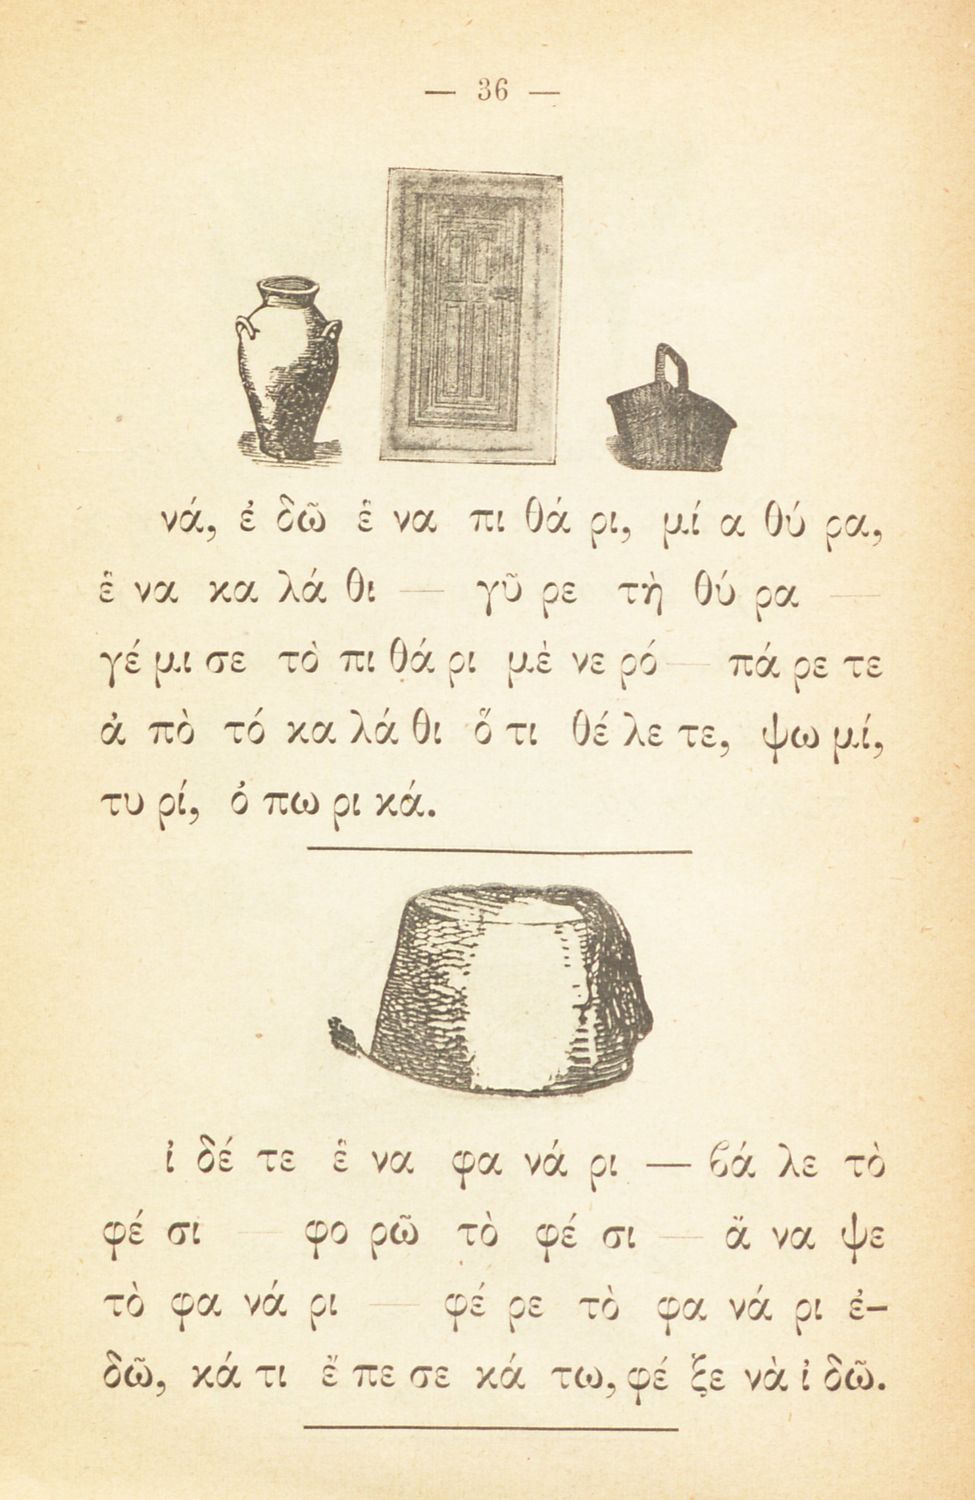 — 36 —
νά, ἐ δῶ ἕ να πι θά ρι, μί α θύ ρα,
ἕ να κα λά θι — γῦ ρε τὴ θύ ρα —
γέ μι σε τὸ πι θά ρι μὲ νε ρό — πά ρε τε
ἀ πὸ τό κα λά θι ὅ τι θέ λε τε, ψω μί,
τυ ρί, ὀ πω ρι κά.
ἰ δέ τε ἕ να φα νά ρι — βά λε τὸ
φέ σι — φο ρῶ τὸ φέ σι — ἄ να ψε
τὸ φα νά ρι — φέ ρε τὸ φα νά ρι ἐ-
δῶ, κά τι ἔ πε σε κά τω, φέ ξε νὰ ἰ δῶ.